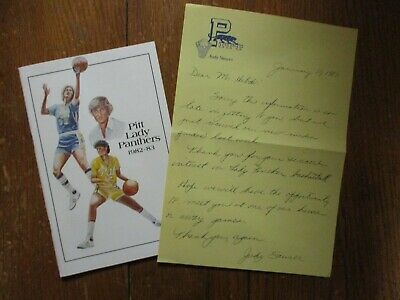 Pitt
Lady
Panthers
1982-83
P
PANTHERS
Judy Saurer
January 19, 1983
Dear Mr.
Sorry this information is so
late in getting to you, but we
just
Thank you for your sincere
interest in Lady Panther basketball.
Hope we will have the opportunity
to meet you at one of our home
or away games.
Thank you again
Judy Saurer